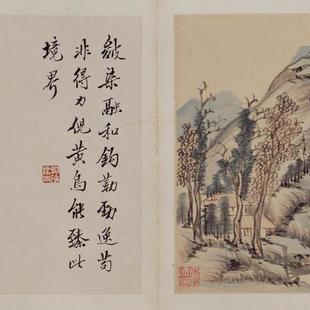 皴染融和鈎勒勁逸苟
非得力倪黃烏能臻此
境界